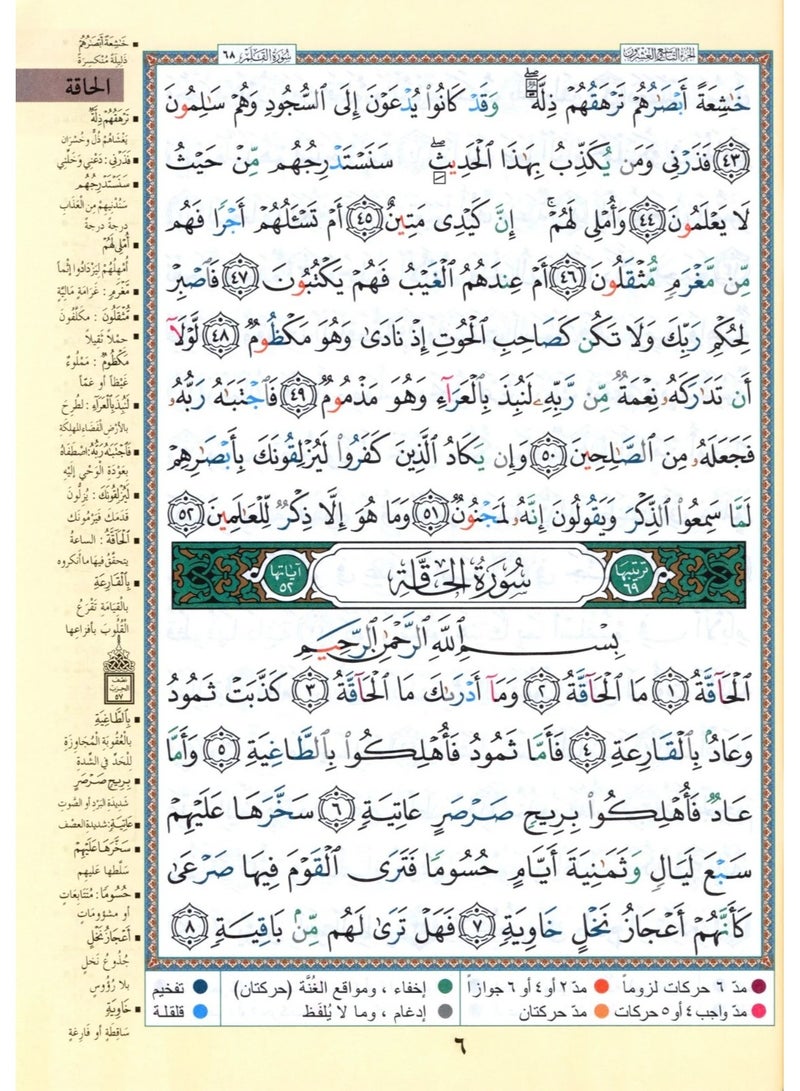 الجزء التاسع والعشرون
سورة القلم ٦٨
خَٰشِعَةً أَبْصَٰرُهُمْ تَرْهَقُهُمْ ذِلَّةٌ ۖ وَقَدْ كَانُوا۟ يُدْعَوْنَ إِلَى ٱلسُّجُودِ وَهُمْ سَٰلِمُونَ
٤٣ فَذَرْنِى وَمَن يُكَذِّبُ بِهَٰذَا ٱلْحَدِيثِ ۖ سَنَسْتَدْرِجُهُم مِّنْ حَيْثُ
لَا يَعْلَمُونَ ٤٤ وَأُمْلِى لَهُمْ ۚ إِنَّ كَيْدِى مَتِينٌ ٤٥ أَمْ تَسْـَٔلُهُمْ أَجْرًا فَهُم
مِّن مَّغْرَمٍ مُّثْقَلُونَ ٤٦ أَمْ عِندَهُمُ ٱلْغَيْبُ فَهُمْ يَكْتُبُونَ ٤٧ فَٱصْبِرْ
لِحُكْمِ رَبِّكَ وَلَا تَكُن كَصَاحِبِ ٱلْحُوتِ إِذْ نَادَىٰ وَهُوَ مَكْظُومٌ ٤٨ لَّوْلَآ
أَن تَدَٰرَكَهُۥ نِعْمَةٌ مِّن رَّبِّهِۦ لَنُبِذَ بِٱلْعَرَآءِ وَهُوَ مَذْمُومٌ ٤٩ فَٱجْتَبَٰهُ رَبُّهُۥ
فَجَعَلَهُۥ مِنَ ٱلصَّٰلِحِينَ ٥٠ وَإِن يَكَادُ ٱلَّذِينَ كَفَرُوا۟ لَيُزْلِقُونَكَ بِأَبْصَٰرِهِمْ
لَمَّا سَمِعُوا۟ ٱلذِّكْرَ وَيَقُولُونَ إِنَّهُۥ لَمَجْنُونٌ ٥١ وَمَا هُوَ إِلَّا ذِكْرٌ لِّلْعَٰلَمِينَ ٥٢
ترتيبها ٦٩ سُورَةُ الحَاقَّة آياتها ٥٢
بِسْمِ ٱللَّهِ ٱلرَّحْمَٰنِ ٱلرَّحِيمِ
ٱلْحَآقَّةُ ١ مَا ٱلْحَآقَّةُ ٢ وَمَآ أَدْرَىٰكَ مَا ٱلْحَآقَّةُ ٣ كَذَّبَتْ ثَمُودُ
وَعَادٌۢ بِٱلْقَارِعَةِ ٤ فَأَمَّا ثَمُودُ فَأُهْلِكُوا۟ بِٱلطَّاغِيَةِ ٥ وَأَمَّا
عَادٌ فَأُهْلِكُوا۟ بِرِيحٍ صَرْصَرٍ عَاتِيَةٍ ٦ سَخَّرَهَا عَلَيْهِمْ
سَبْعَ لَيَالٍ وَثَمَٰنِيَةَ أَيَّامٍ حُسُومًا فَتَرَى ٱلْقَوْمَ فِيهَا صَرْعَىٰ
كَأَنَّهُمْ أَعْجَازُ نَخْلٍ خَاوِيَةٍ ٧ فَهَلْ تَرَىٰ لَهُم مِّنۢ بَاقِيَةٍ ٨
خَٰشِعَةً أَبْصَٰرُهُمْ
ذَلِيلَةً مُنْكَسِرَةً
الحاقة
تَرْهَقُهُمْ ذِلَّةٌ
يَغْشَاهُمْ ذُلٌّ وَخُسْرَان
فَذَرْنِى : دَعْنِي وَخَلِّنِي
سَنَسْتَدْرِجُهُم
سَنُدْنِيهِمْ مِنَ العَذَاب
دَرجةً درجةً
أُمْلِى لَهُمْ
أُمْهِلُهُمْ لِيَزْدَادُوا إثْماً
مَغْرَمٍ : غَرَامَةٍ مَالِيَّةٍ
مُثْقَلُونَ : مكلَّفُونَ
حِمْلاً ثَقِيلاً
مَكْظُومٌ : مَمْلُوءٌ
غَيْظاً أو غَمّاً
لَنُبِذَ بِٱلْعَرَآءِ : لَطُرِحَ
بالأَرْضِ الفَضَاءِ المُهلِكة
فَٱجْتَبَٰهُ رَبُّهُۥ : اصْطَفَاهُ
بِعَوْدَةِ الوَحْيِ إلَيْهِ
لَيُزْلِقُونَكَ : يُزِلُّونَ
قَدَمَك فَيَرْمُونَك
ٱلْحَآقَّةُ : الساعةُ
يتحقَّقُ فيها ما أنكروه
بِٱلْقَارِعَةِ
بالقِيَامَةِ تَقْرَعُ
القُلُوبَ بأَفْزَاعِهَا
نصف
الحزب
٥٧
بِٱلطَّاغِيَةِ
بالعُقُوبَةِ المُجَاوِزَةِ
لِلْحَدِّ في الشِّدة
بِرِيحٍ صَرْصَرٍ
شَدِيدةِ البَرْدِ أو الصَّوْتِ
عَاتِيَةٍ : شَدِيدةِ العَصْفِ
سَخَّرَهَا عَلَيْهِمْ
سَلَّطَها عليهم
حُسُومًا : مُتَتَابِعَاتٍ
أو مشؤوماتٍ
أَعْجَازُ نَخْلٍ
جُذُوعُ نَخلٍ
بلا رُؤُوسٍ
خَاوِيَةٍ
سَاقِطَةٍ أو فَارِغَةٍ
مدّ ٦ حركات لزوماً
مدّ ٢ أو ٤ أو ٦ جوازاً
إخفاء ، ومواقع الغُنَّة (حركتان)
تفخيم
مدّ واجب ٤ أو ٥ حركات
مدّ حركتان
إدغام ، وما لا يُلفَظ
قلقلة
٦